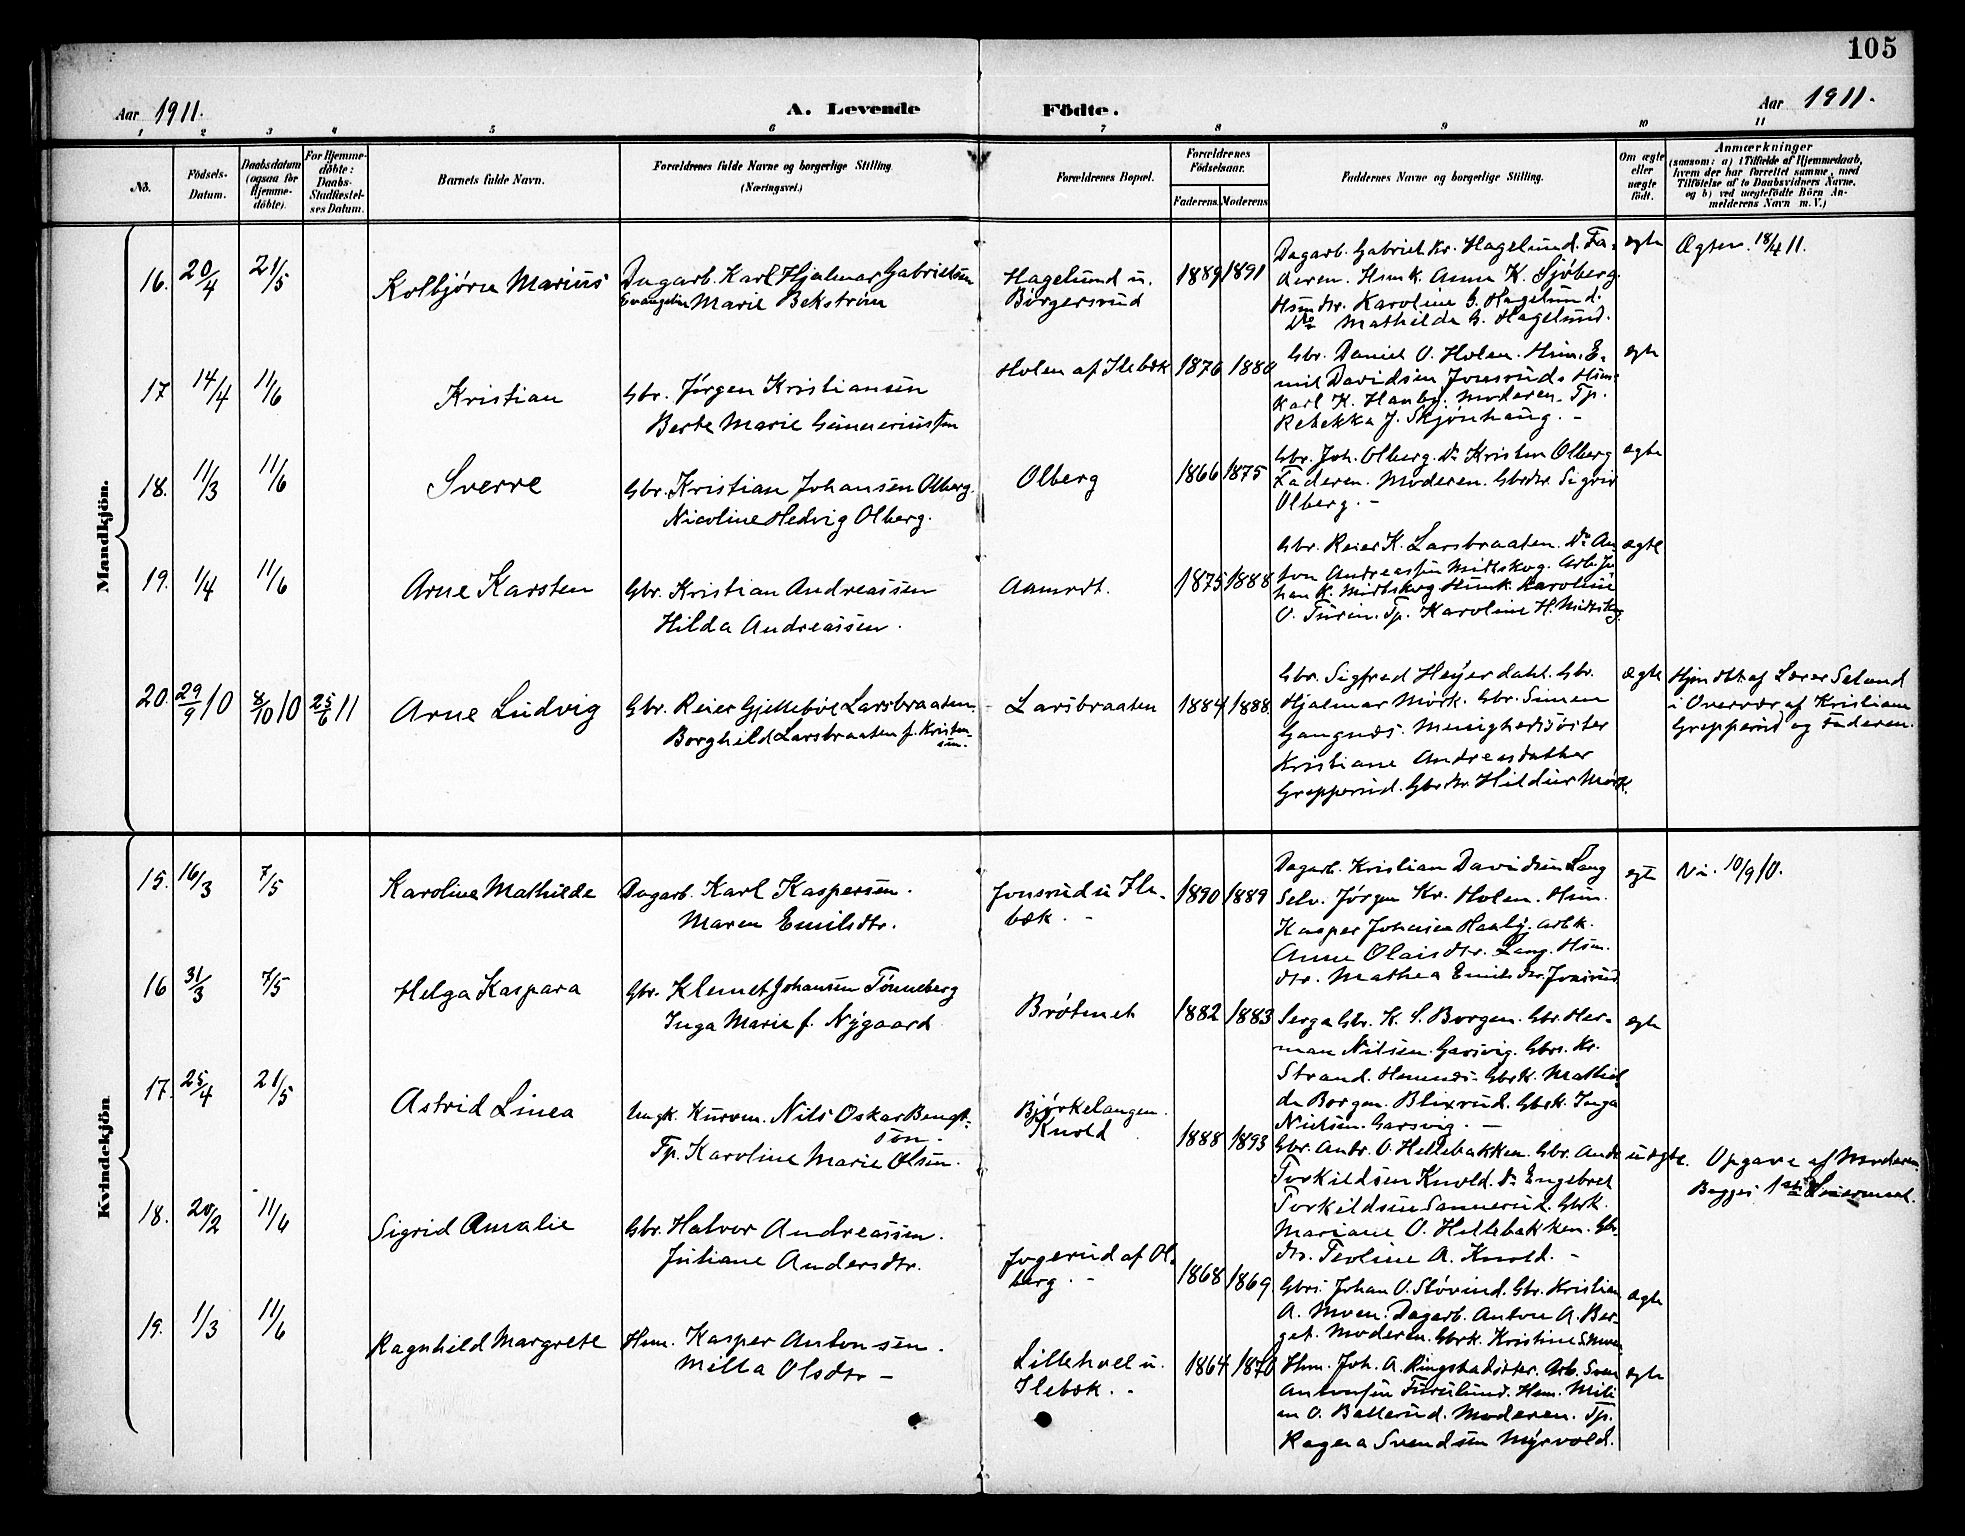 105
Aar 1911.
A. Levende Födte.
Aar 1911.
1 2 3 4 5 6 7 8 9 10 11
No.
Födsels-
Datum.
Daabsdatum
(ogsaa for
Hjemme-
döbte).
For Hjemme-
döbte:
Daabs-
Stadfæstel-
ses Datum.
Barnets fulde Navn.
Forældrenes fulde Navne og borgerlige Stilling.
(Næringsvei.)
Forældrenes Bopæl.
Forældrenes
Födselsaar.
Faderens. Moderens.
Faddernes Navne og borgerlige Stilling.
Om ægte
eller
uægte
födt.
Anmærkninger
(saasom: a) i Tilfælde af Hjemmedaab,
hvem der har forrettet samme, med
Tilföielse af to Daabsvidners Navne,
og b) ved uægtefödte Börn An-
melderens Navn m. V.)
Mandkjön.
16. 20/4 21/5 Kolbjørn Marius
Dagarb. Karl Hjalmar Gabrielsen
Evangeline Marie Bekström
Hagelund u.
Börgersrud
1889 1891
Dagarb. Gabriel Kr. Hagelund. Fa-
deren. Hsmk. Anna K. Sjöberg.
Hsmdtr. Karoline G. Hagelund.
Do Mathilde G. Hagelund.
egte
Ægtev. 18/4 11.
17 14/4 11/6 Kristian
Gbr. Jörgen Kristiansen
Berte Marie Gunnerius
Holen af Ilebæk
1876 1880
Gbr. Daniel O. Holen. Hsm. E-
mil Davidsen Jonsrud. Hsm.
Karl K. Haneby. Moderen. Tp.
Rebekka J. Skjönhaug. -
egte
18. 11/3 11/6 Sverre
Gbr. Kristian Johansen Olberg.
Nicoline Hedvig Olberg.
Olberg
1866 1875
Gbr. Joh. Olberg. Do Kristen Olberg
Faderen. Moderen. Gbrdtr. Sigrid
Olberg. -
egte
19. 1/4 11/6 Arne Karsten
Gbr. Kristian Andreassen
Hilda Andreassen.
Aamodt.
1875 1888
Gbr. Reier K. Larsbraaten. Do An-
ton Andreassen Midtskog. Arb. Jo-
han K. Midtskog Hsmk. Karoline
O. Turin. Tp. Karoline H. Midtskog.
ægte
20. 29/9 10 8/10 10 25/6 11 Arne Ludvig
Gbr. Reier Gjellebøl Larsbraaten.
Borghild Larsbraaten f. Kristen-
sen.
Larsbraaten
1884 1888.
Gbr. Sigfred Heyerdahl. Gbr.
Hjalmar Mörk. Gbr. Simen
Gangnæs. Menighedssöster
Kristiane Andreasdatter
Grepperud. Gbrdtr. Hildur Mörk.
ægte
Hjmdbt. af Lærer Seland
i Overvær af Kristiane
Grepperud og Faderen.
Kvindekjön
15. 16/3 7/5 Karoline Mathilde
Dagarb. Karl Kaspersen.
Maren Emilsdtr.
Jonsrud u Ile-
bæk. -
1890 1889
Dagarb. Kristian Davidsen Lang
Selv. Jörgen Kr. Holen. Hsm.
Kasper Johansen Haneby. Arbk.
Anne Olaisdtr. Lang. Hsm.
dtr. Mathea Emilsdtr. Jonsrud
egte
Vi. 10/9 10.
16 31/3 7/5 Helga Kaspara
Gbr. Klemet Johansen Tönneberg
Inga Marie f. Nygaard
Bröthet
1882 1883
Serga Gbr. K. S. Borgen. Gbr. Her-
man Nilsen. Garsvig. Gbrs. Kr.
Strand. Hemnæs. Gbrk. Mathil-
de Borgen. Blixrud. Gbrk. Inga
Nielsen. Garsvig. -
egte
17. 25/4 21/5 Astrid Linea
Ungk. Kurvm. Nils Oskar Bengt-
son.
Tp. Karoline Marie Olsen.
Bjørkelangen.
Knold
1888 1893
Gbr. Andr. O. Hellebakken. Gbr. Andr.
Torkildsen Knold. Do Engebret
Torkildsen Sannerud. Gbrk.
Mariane O. Hellebakken. Gbr
dtr. Teoline A. Knold. -
uægte.
Opgave af Moderen
Begges 1ste Leiermaal.
18. 20/2 11/6 Sigrid Amalie
Gbr. Halvor Andreassen.
Juliane Andersdtr.
Jogerud af Ol-
berg. -
1868 1869
Gbrs. Johan O. Slövind. Gbr. Kristian
A. Moen. Dagarb. Anton A. Ber-
get. Moderen. Gbrk. Kristine S. Moen
ægte
19. 1/3 11/6 Ragnhild Margrete
Hsm. Kasper Antonsen.
Milla Olsdtr -
Lillehol u.
Ilebæk. -
1864 1870
Hsm. Joh. A. Ringstadsæter. Arb. Sven
Antonsen Furulund. Hsm. Mili-
an O. Ballerud. Moderen. Tp.
Ragna Svendsen Myrvold.
egte